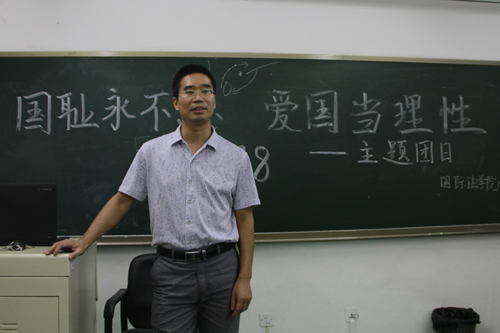 国耻永不 爱国当理性
8 —主题团日
国际法学院